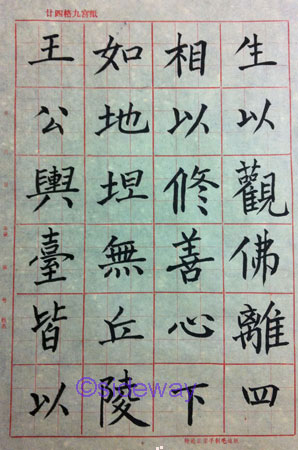 廿四格九宮紙
生以觀佛離四
相以修善心下
如地坦無丘陵
王公輿臺皆以
©sideway